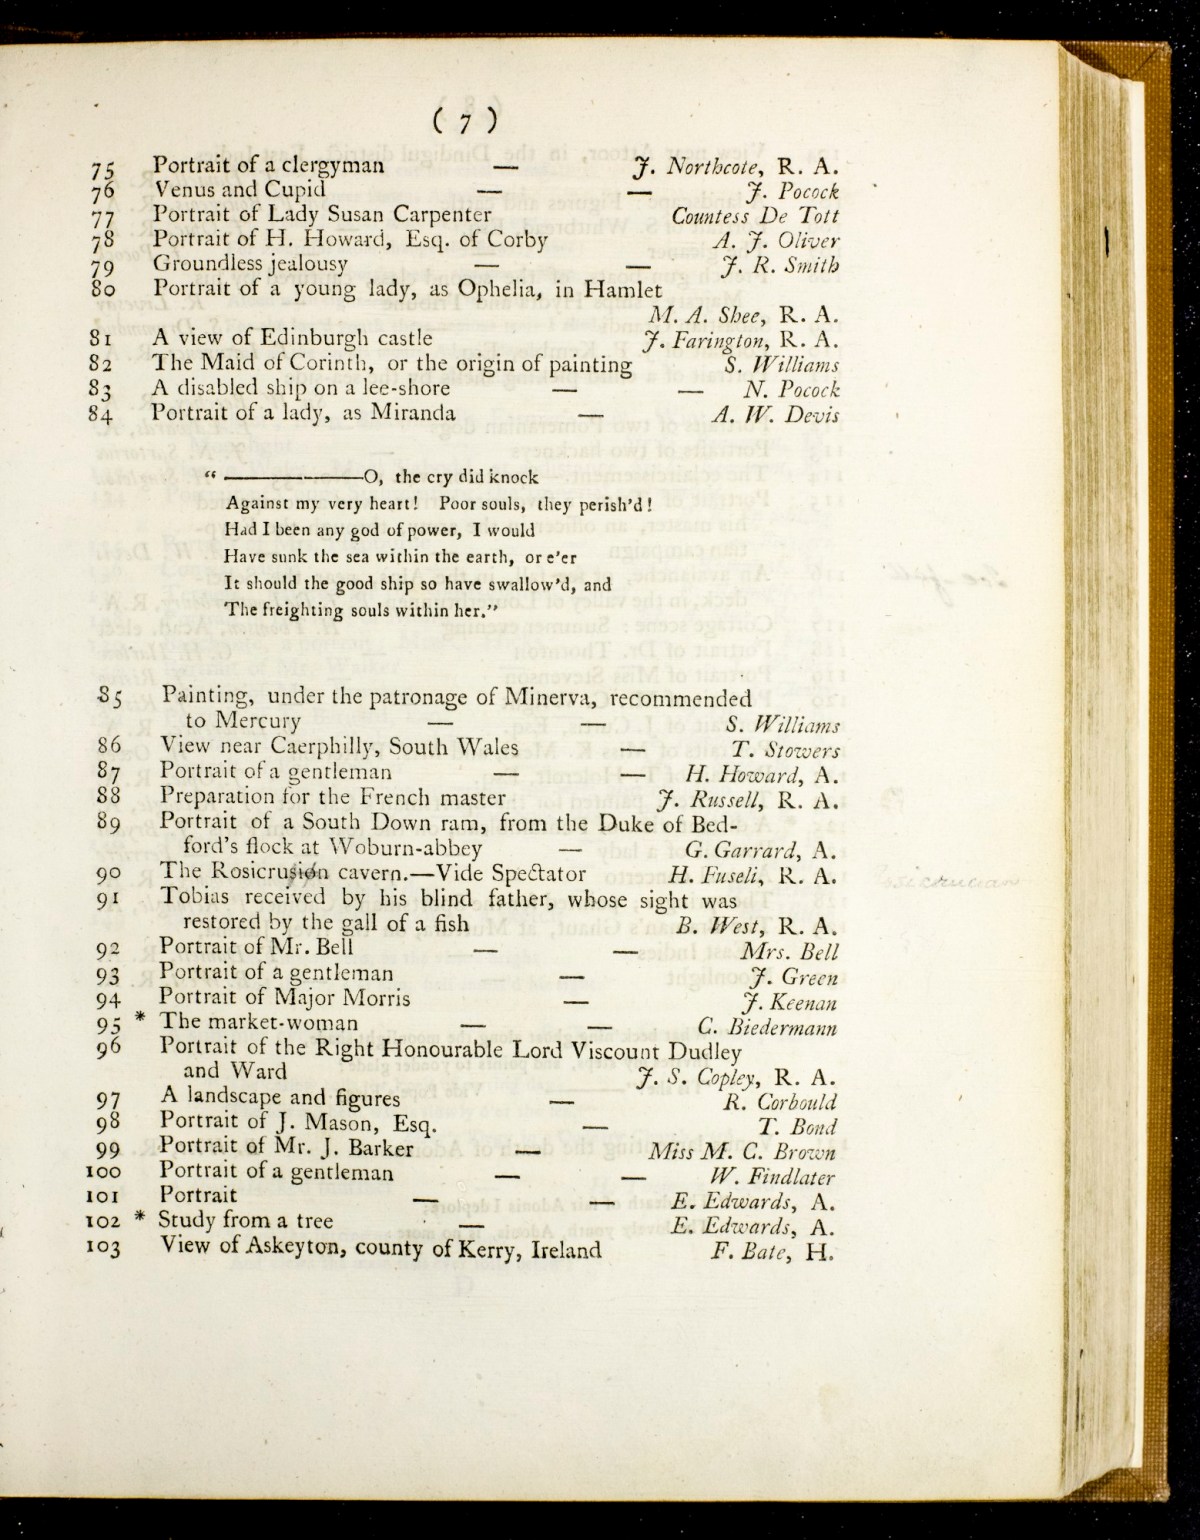 ( 7 )
75 Portrait of a clergyman — J. Northcote, R. A.
76 Venus and Cupid — — J. Pocock
77 Portrait of Lady Susan Carpenter Countess De Tott
78 Portrait of H. Howard, Esq. of Corby A. J. Oliver
79 Groundless jealousy — — J. R. Smith
80 Portrait of a young lady, as Ophelia, in Hamlet
M. A. Shee, R. A.
81 A view of Edinburgh castle J. Farington, R. A.
82 The Maid of Corinth, or the origin of painting S. Williams
83 A disabled ship on a lee-shore — — N. Pocock
84 Portrait of a lady, as Miranda — A. W. Devis
“ ————————O, the cry did knock
Against my very heart! Poor souls, they perish'd!
Had I been any god of power, I would
Have sunk the sea within the earth, or e'er
It should the good ship so have swallow'd, and
The freighting souls within her.”
85 Painting, under the patronage of Minerva, recommended
to Mercury — — S. Williams
86 View near Caerphilly, South Wales — T. Stowers
87 Portrait of a gentleman — — H. Howard, A.
88 Preparation for the French master J. Russell, R. A.
89 Portrait of a South Down ram, from the Duke of Bed-
ford's flock at Woburn-abbey — G. Garrard, A.
90 The Rosicrusion cavern.—Vide Spectator H. Fuseli, R. A.
91 Tobias received by his blind father, whose sight was
restored by the gall of a fish B. West, R. A.
92 Portrait of Mr. Bell — — Mrs. Bell
93 Portrait of a gentleman — J. Green
94 Portrait of Major Morris — J. Keenan
95 * The market-woman — — C. Biedermann
96 Portrait of the Right Honourable Lord Viscount Dudley
and Ward J. S. Copley, R. A.
97 A landscape and figures — R. Corbould
98 Portrait of J. Mason, Esq. — T. Bond
99 Portrait of Mr. J. Barker — Miss M. C. Brown
100 Portrait of a gentleman — — W. Findlater
101 Portrait — — E. Edwards, A.
102 * Study from a tree — E. Edwards, A.
103 View of Askeyton, county of Kerry, Ireland F. Bate, H.